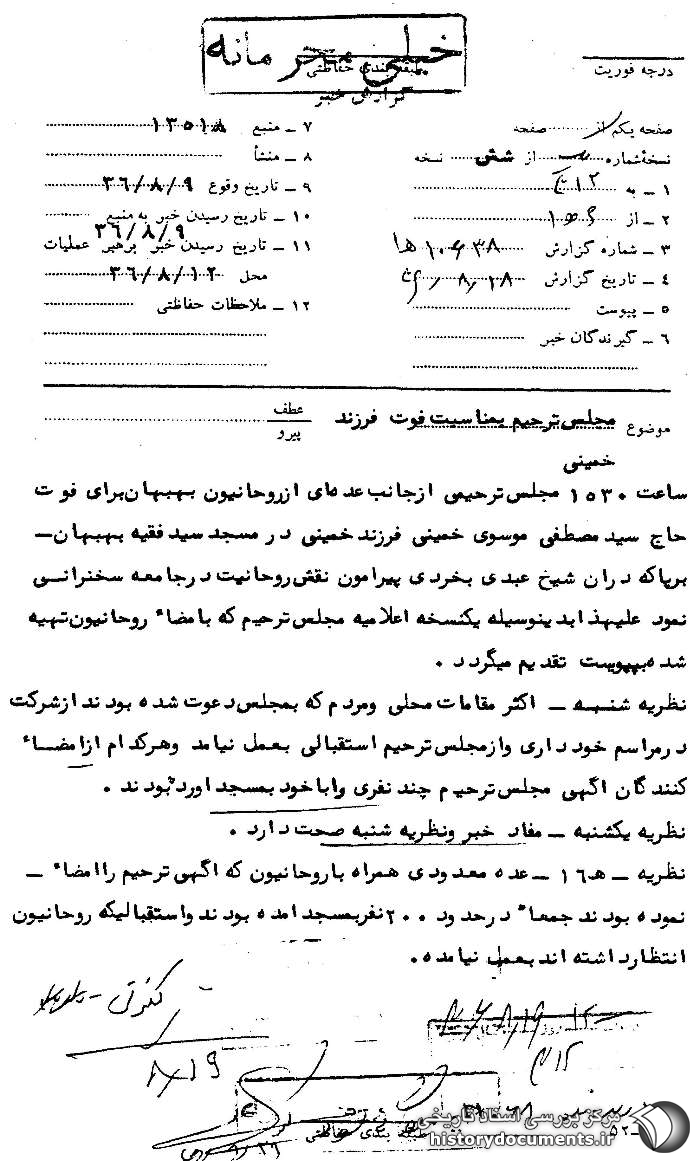 خیلی محرمانه
طبقه بندی حفاظتی
گزارش خبر
درجه فوریت
صفحه یکم از صفحه
نسخه شماره از شش نسخه
۱ ـ به
۲ ـ از
۳ ـ شماره گزارش ۱۰۶۳۸
۴ ـ تاریخ گزارش
۵ ـ پیوست
۶ ـ گیرندگان خبر
۷ ـ منبع ۱۳۵۱۸
۸ ـ منشأ
۹ ـ تاریخ وقوع ۳۶/۸/۹
۱۰ ـ تاریخ رسیدن خبر به منبع ۳۶/۸/۹
۱۱ ـ تاریخ رسیدن خبر برهبر عملیات
محل ۳۶/۸/۱۲
۱۲ ـ ملاحظات حفاظتی
موضوع مجلس ترحیم بمناسبت فوت فرزند
خمینی
عطف
پیرو
ساعت ۱۵۳۰ مجلس ترحیمی ازجانب عده‌ای ازروحانیون بهبهان برای فوت
حاج سید مصطفی موسوی خمینی فرزند خمینی در مسجد سید فقیه بهبهان ـ
برپاکه دران شیخ عبدی بخردی پیرامون نقش روحانیت درجامعه سخنرانی
نمود علیهذا بدینوسیله یکنسخه اعلامیه مجلس ترحیم که بامضاء روحانیون تهیه
شده بپیوست تقدیم میگردد .
نظریه شنبه ـ اکثر مقامات محلی ومردم که بمجلس دعوت شده بودند ازشرکت
درمراسم خودداری وازمجلس ترحیم استقبالی بعمل نیامد وهرکدام ازامضاء
کنندگان اگهی مجلس ترحیم چند نفری راباخود بمسجد اورده بودند .
نظریه یکشنبه ـ مفاد خبر ونظریه شنبه صحت دارد .
نظریه ـ ه‍ ۱۶ ـ عده معدودی همراه باروحانیون که اگهی ترحیم راامضاء ـ
نموده بودند جمعا" درحدود ۲۰۰ نفربمسجد امده بودند واستقبالیکه روحانیون
انتظارداشته اند بعمل نیامده .
۸/۱۹
طبقه بندی حفاظتی
مرکز بررسی اسناد تاریخی
historydocuments.ir